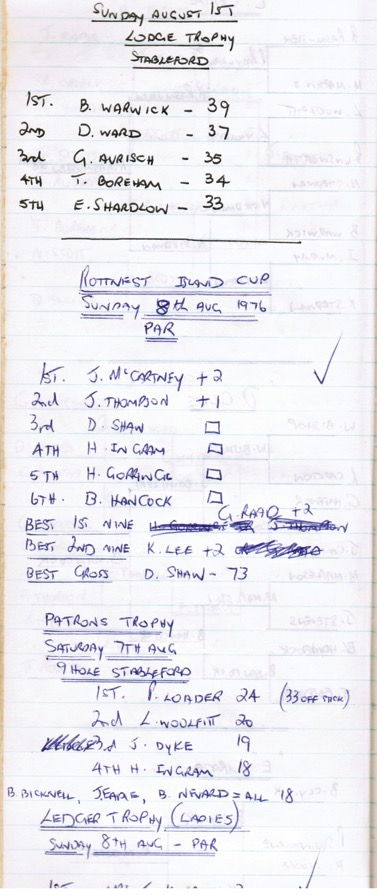 SUNDAY AUGUST 1ST
LODGE TROPHY
STABLEFORD
1ST. B. WARWICK - 39
2ND D. WARD - 37
3rd G. AURISCH - 35
4TH T. BOREHAM - 34
5TH E. SHARDLOW - 33
ROTTNEST ISLAND CUP
SUNDAY 8th AUG 1976
PAR
1ST. J. McCARTNEY +2
2nd J. THOMPSON +1
3rd D. SHAW □
4TH H. INGRAM □
5TH H. GORRINGE □
6TH. B. HANCOCK □
BEST 1ST NINE +2
BEST 2ND NINE K. LEE +2
BEST CROSS D. SHAW - 73
PATRONS TROPHY
SATURDAY 7TH AUG
9 HOLE STABLEFORD
1ST. P. LOADER 24 (33 OFF STICK)
2nd L. WOOLFITT 20
3rd J. DYKE 19
4TH H. INGRAM 18
B. BICKNELL, B. = ALL 18
LEDGER TROPHY (LADIES)
SUNDAY 8TH AUG - PAR